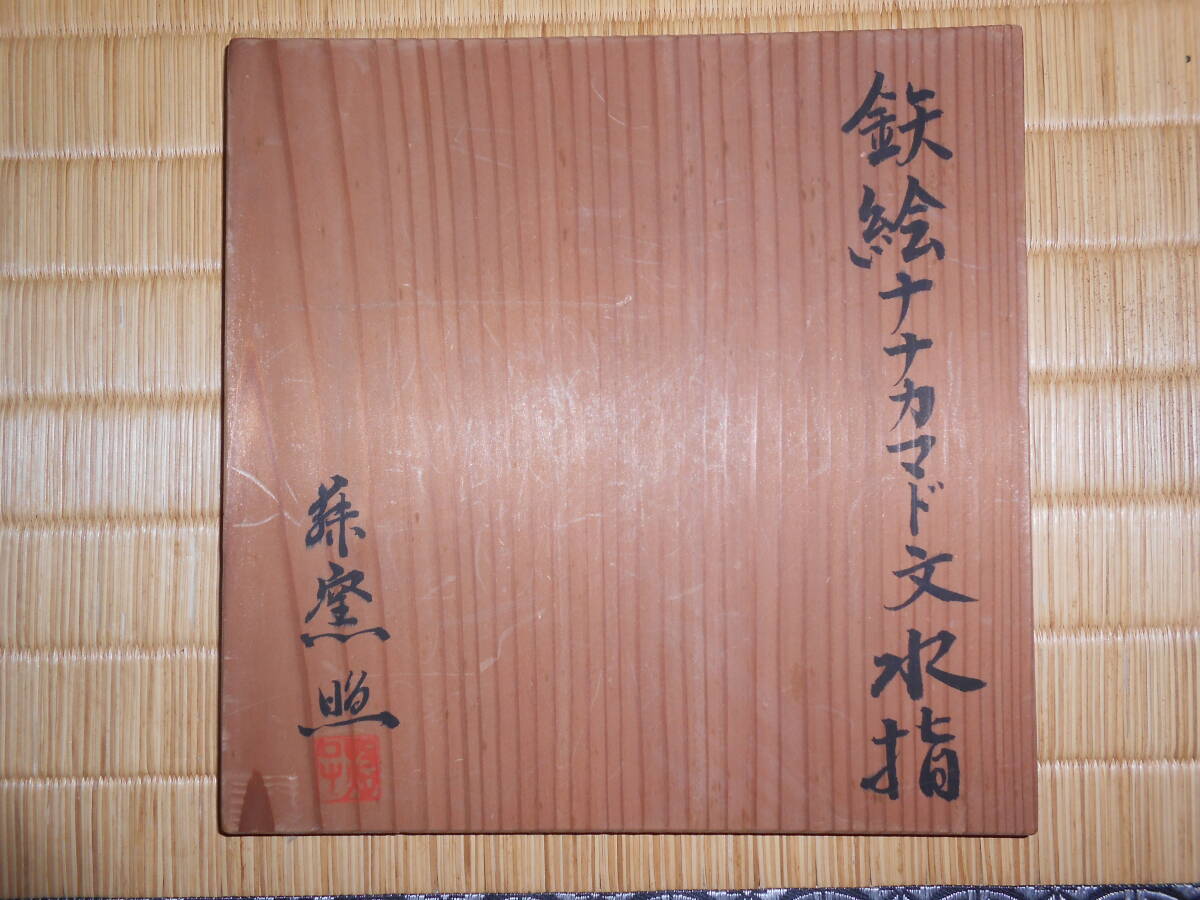 鉄絵ナナカマド文水指
窯 照